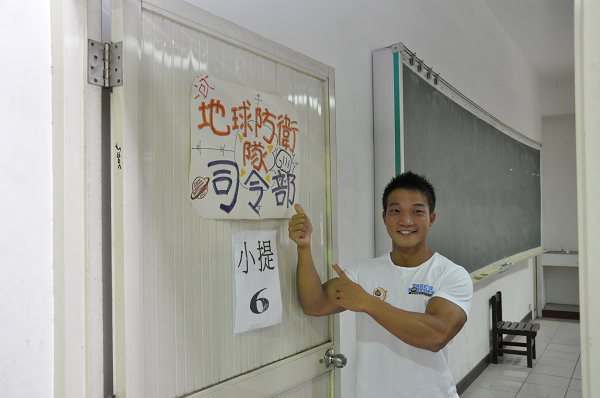 地球防衛
隊
司令部
小提
6